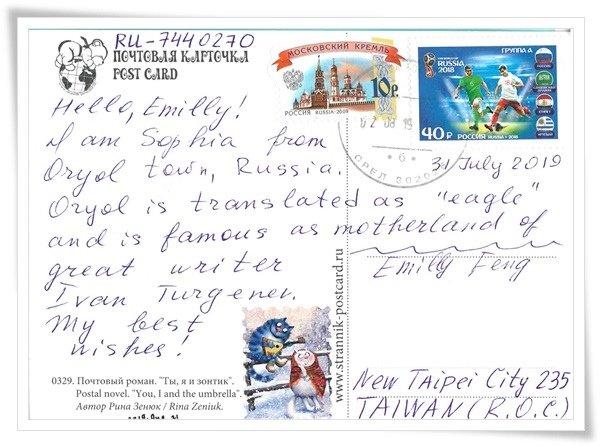 RU-7440270
ПОЧТОВАЯ КАРТОЧКА
POST CARD
МОСКОВСКИЙ КРЕМЛЬ
10р
РОССИЯ RUSSIA 2009
FIFA WORLD CUP
RUSSIA
2018
ГРУППА А
40р РОССИЯ RUSSIA · 2018
ОРЕЛ 302028
Hello, Emilly!
I am Sophia from
Oryol town, Russia.
Oryol is translated as "eagle"
and is famous as motherland of
great writer
Ivan Turgenev.
My best
wishes!
31 July 2019
Emilly Feng
New Taipei City 235
TAIWAN (R.O.C.)
www.strannik-postcard.ru
0329. Почтовый роман. "Ты, я и зонтик".
Postal novel. "You, I and the umbrella".
Автор Рина Зенюк / Rina Zeniuk.